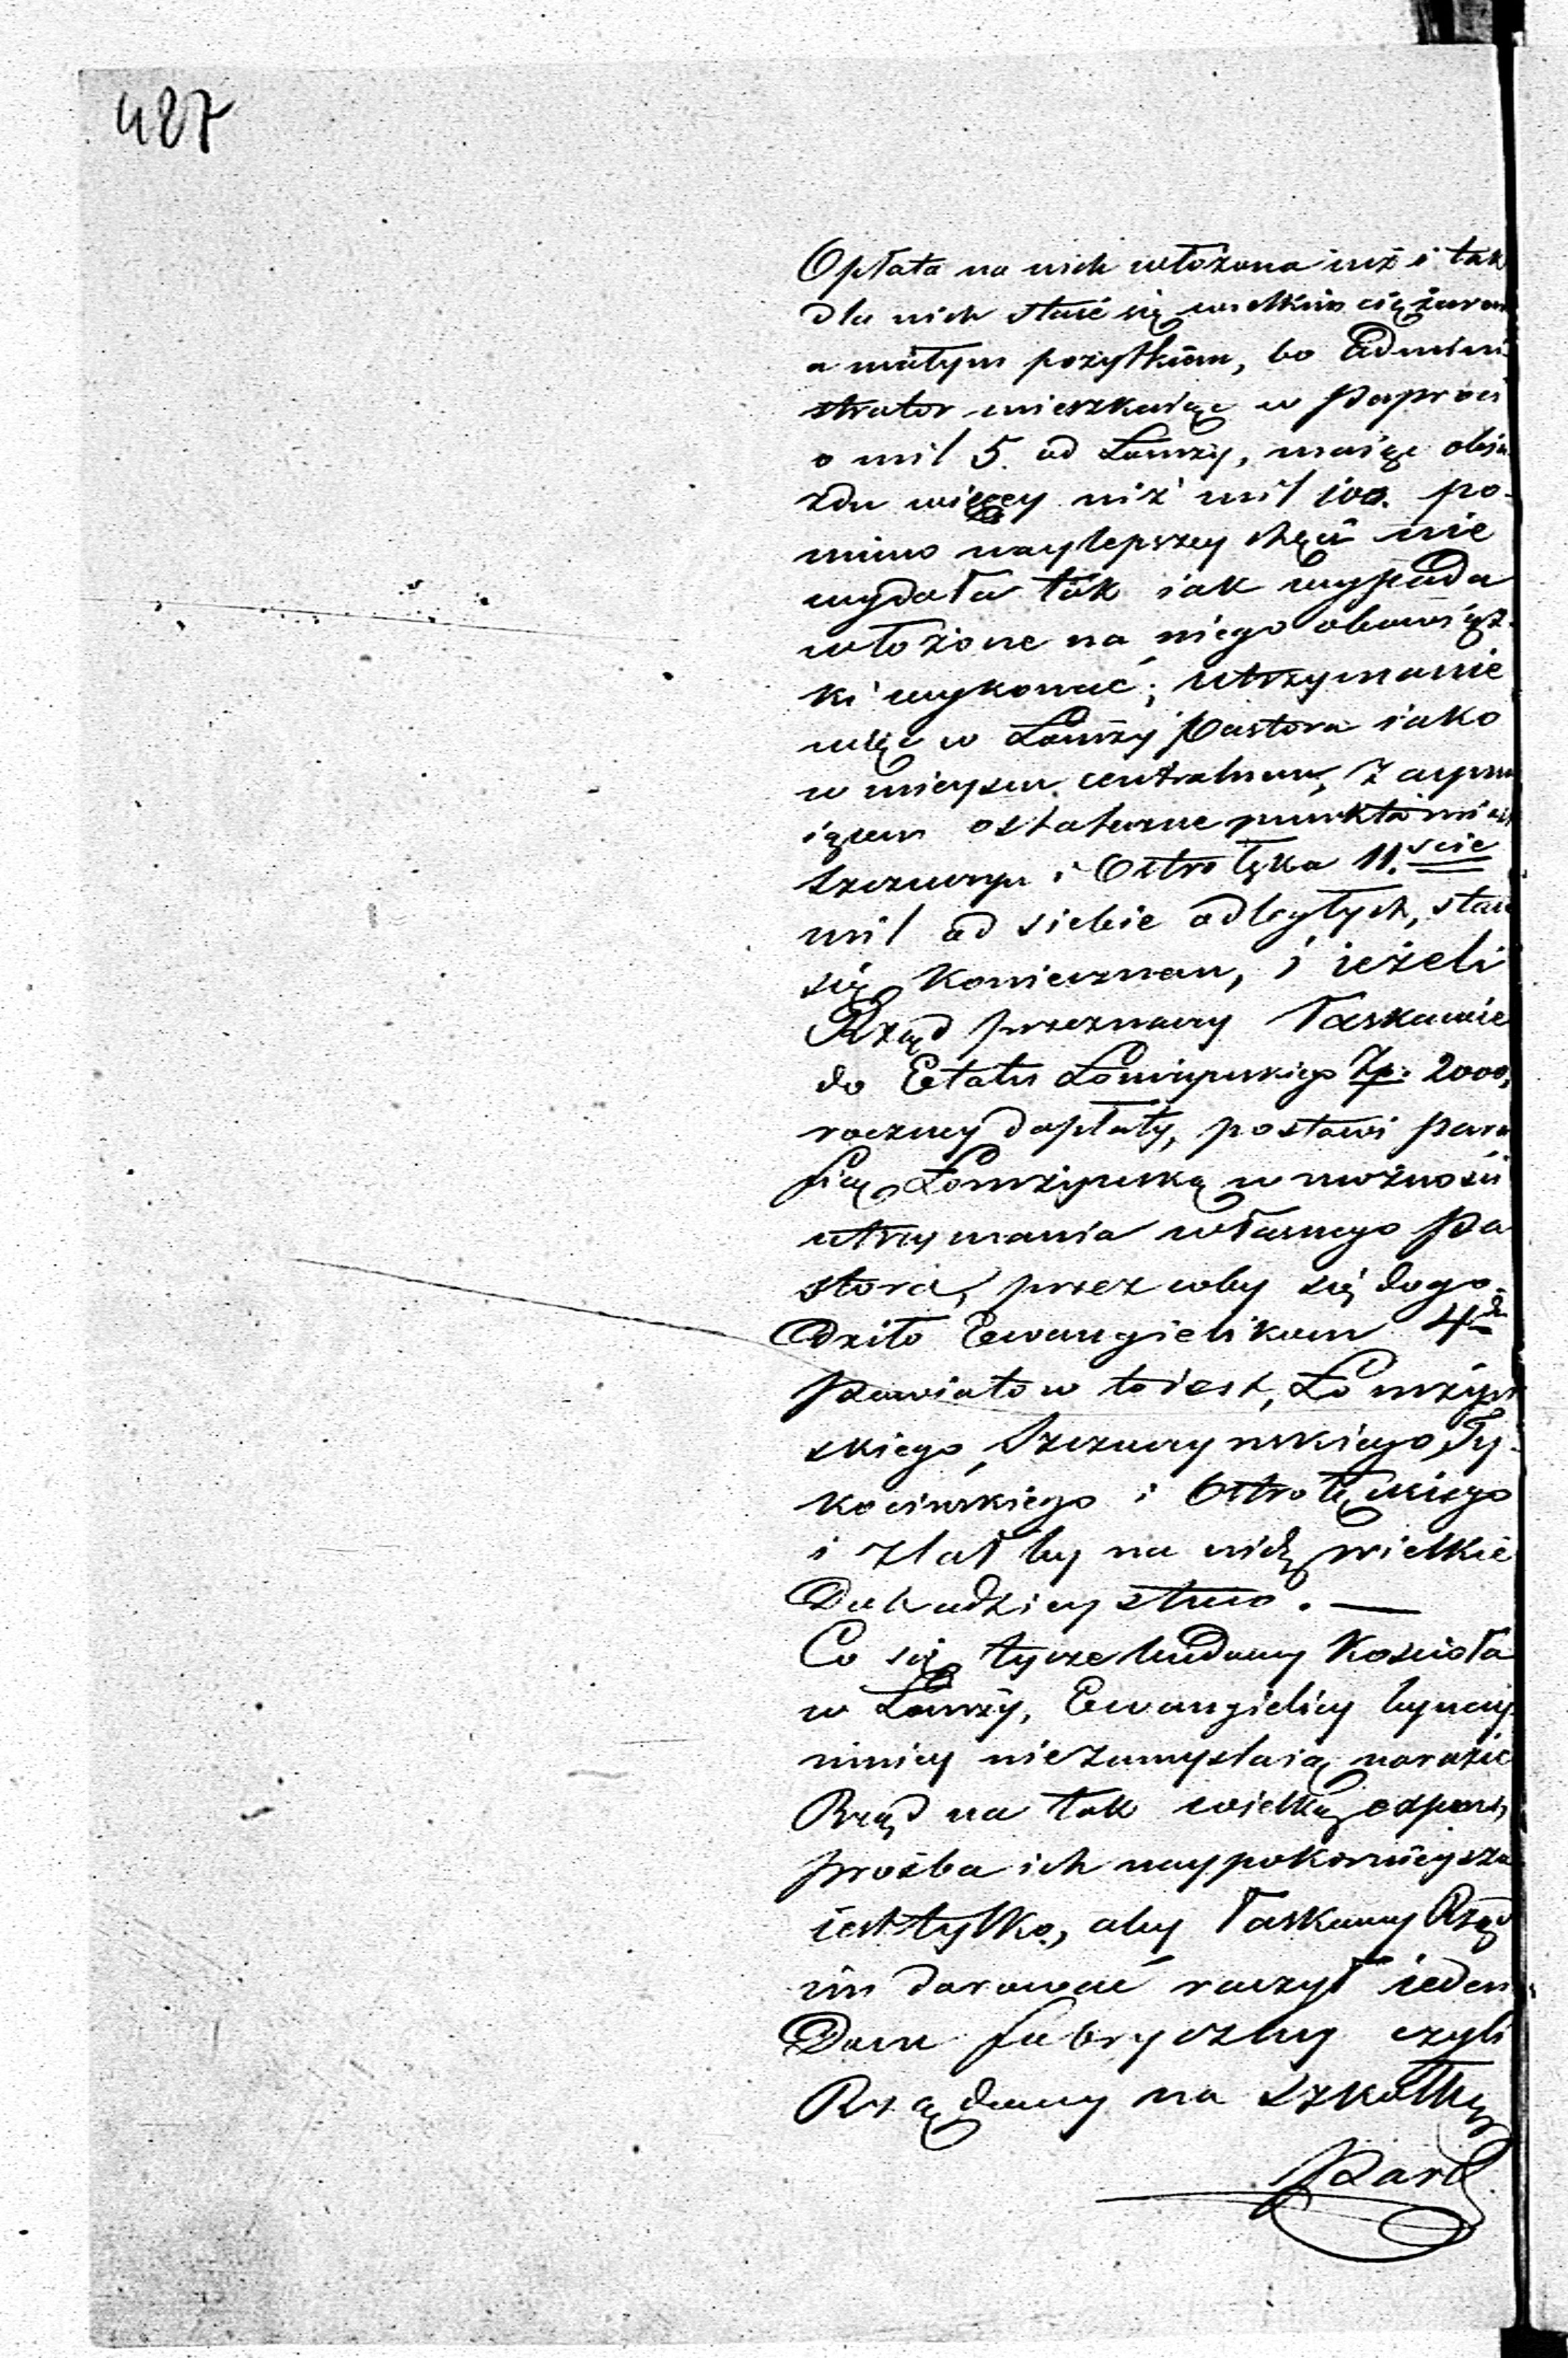 487
Opłata na nich włożona iuż i tak
dla nich staie się wielkim ciężarem
a małym pożytkiem, bo Admini
strator mieszkaiąc w Paproci
o mil 5. od Łomży, maiąc obia
zdu więcey niż mil 100. po-
mimo naylepszey chęci nie
wydoła tak iak wypada
włożone na niego obowiąz-
ki wykonać; utrzymanie
więc w Łomży Pastora iako
w mieyscu centralnem,
iącem ostateczne punkta miast
Szczuczyn i Ostrołęka 11.ście
mil od siebie odległych, staie
się koniecznem, i ieżeli
Rząd przeznaczy łaskawie
do Etatu Łomżyńskiego Zp. 2000,
roczney dopłaty, postawi para
fią Łomżyńską w możności
utrzymania własnego Pa
stora, przez coby się dogo-
dziło Ewangielikom 4ch
Powiatów to iest, Łomżyń
skiego, Szczuczynskiego, Ty-
kocińskiego i Ostrołęckiego
i zlał by na nich wielkie
Dobrodzieystwo. —
Co się tycze budowy Kościoła
w Łomży, Ewangielicy bynay
mniey niezamyślaią narazić
Rząd na tak wielką expens,
prośba ich naypokornieysza
iest tylko, aby łaskawy Rząd
im darować raczył ieden
Dom fabryczny czyli
Rządowy na szkółkę
Par